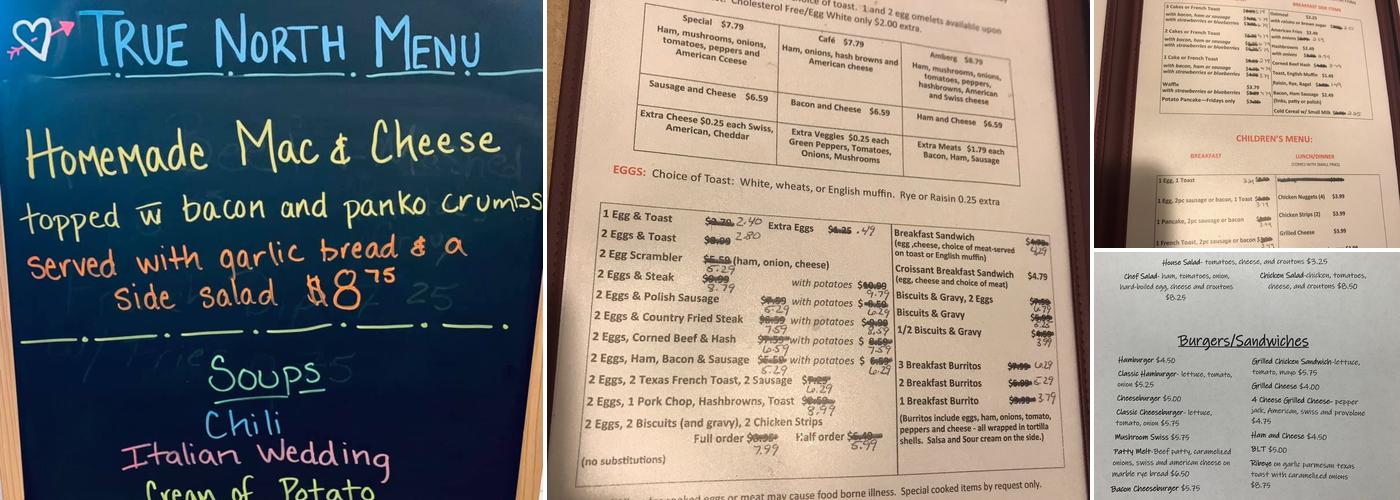 TRUE NORTH MENU
Homemade Mac & Cheese
topped w bacon and panko crumbs
served with garlic bread & a
side salad $8.75
Soups
Chili
Italian Wedding
Cream of Potato
choice of toast. 1 and 2 egg omelets available upon
Cholesterol Free/Egg White only $2.00 extra.
Special $7.79
Ham, mushrooms, onions,
tomatoes, peppers and
American Cceese
Café $7.79
Ham, onions, hash browns and
American cheese
Amberg $8.79
Ham, mushrooms, onions,
tomatoes, peppers,
hashbrowns, American
and Swiss cheese
Sausage and Cheese $6.59
Bacon and Cheese $6.59
Ham and Cheese $6.59
Extra Cheese $0.25 each Swiss,
American, Cheddar
Extra Veggies $0.25 each
Green Peppers, Tomatoes,
Onions, Mushrooms
Extra Meats $1.79 each
Bacon, Ham, Sausage
EGGS: Choice of Toast: White, wheats, or English muffin. Rye or Raisin 0.25 extra
1 Egg & Toast 2.40 Extra Eggs $1.25 .49
2 Eggs & Toast 2.80
2 Egg Scrambler (ham, onion, cheese)
5.29
2 Eggs & Steak with potatoes
8.79 9.79
2 Eggs & Polish Sausage with potatoes
5.29 6.29
2 Eggs & Country Fried Steak with potatoes
7.59 8.59
2 Eggs, Corned Beef & Hash with potatoes
6.59 7.59
2 Eggs, Ham, Bacon & Sausage with potatoes
5.29 6.29
2 Eggs, 2 Texas French Toast, 2 Sausage
6.29
2 Eggs, 1 Pork Chop, Hashbrowns, Toast
8.99
2 Eggs, 2 Biscuits (and gravy), 2 Chicken Strips
Full order Half order
7.99 5.99
(no substitutions)
Breakfast Sandwich
4.29
(egg ,cheese, choice of meat-served
on toast or English muffin)
Croissant Breakfast Sandwich $4.79
(egg, cheese and choice of meat)
Biscuits & Gravy, 2 Eggs
6.79
Biscuits & Gravy
1/2 Biscuits & Gravy
3.99
3 Breakfast Burritos 6.29
2 Breakfast Burritos 5.29
1 Breakfast Burrito 3.79
(Burritos include eggs, ham, onions, tomato,
peppers and cheese - all wrapped in tortilla
shells. Salsa and Sour cream on the side.)
cooked eggs or meat may cause food borne illness. Special cooked items by request only.
BREAKFAST SIDE ITEMS
3 Cakes or French Toast
with bacon, ham or sausage
with strawberries or blueberries
2 Cakes or French Toast
with bacon, ham or sausage
with strawberries or blueberries
1 Cake or French Toast
with bacon, ham or sausage
with strawberries or blueberries
Waffle $3.79
with strawberries or blueberries
Potato Pancake—Fridays only
Oatmeal $2.25
with raisins or brown sugar
American Fries
with onions
Hashbrowns $2.49
with onions
Corned Beef Hash
Toast, English Muffin $1.49
Raisin, Rye, Bagel
Bacon, Ham Sausage $2.49
(links, patty or polish)
Cold Cereal w/ Small Milk 2.25
CHILDREN'S MENU:
BREAKFAST
LUNCH/DINNER
(COMES WITH SMALL FRIES)
1 Egg, 1 Toast
1 Egg, 2pc sausage or bacon, 1 Toast
1 Pancake, 2pc sausage or bacon
1 French Toast, 2pc sausage or bacon
Chicken Nuggets (4) $3.99
Chicken Strips (2) $3.99
Grilled Cheese $3.99
House Salad- tomatoes, cheese, and croutons $3.25
Chef Salad- ham, tomatoes, onion,
hard-boiled egg, cheese and croutons
$8.25
Chicken Salad-chicken, tomatoes,
cheese, and croutons $8.50
Burgers/Sandwiches
Hamburger $4.50
Classic Hamburger- lettuce, tomato,
onion $5.25
Cheeseburger $5.00
Classic Cheeseburger- lettuce,
tomato, onion $5.75
Mushroom Swiss $5.75
Patty Melt-Beef patty, caramelized
onions, swiss and american cheese on
marble rye bread $6.50
Bacon Cheeseburger $5.75
Grilled Chicken Sandwich-lettuce,
tomato, mayo $5.75
Grilled Cheese $4.00
4 Cheese Grilled Cheese- pepper
jack, American, swiss and provolone
$4.75
Ham and Cheese $4.50
BLT $5.00
Ribeye on garlic parmesan texas
toast with caramelized onions
$8.75